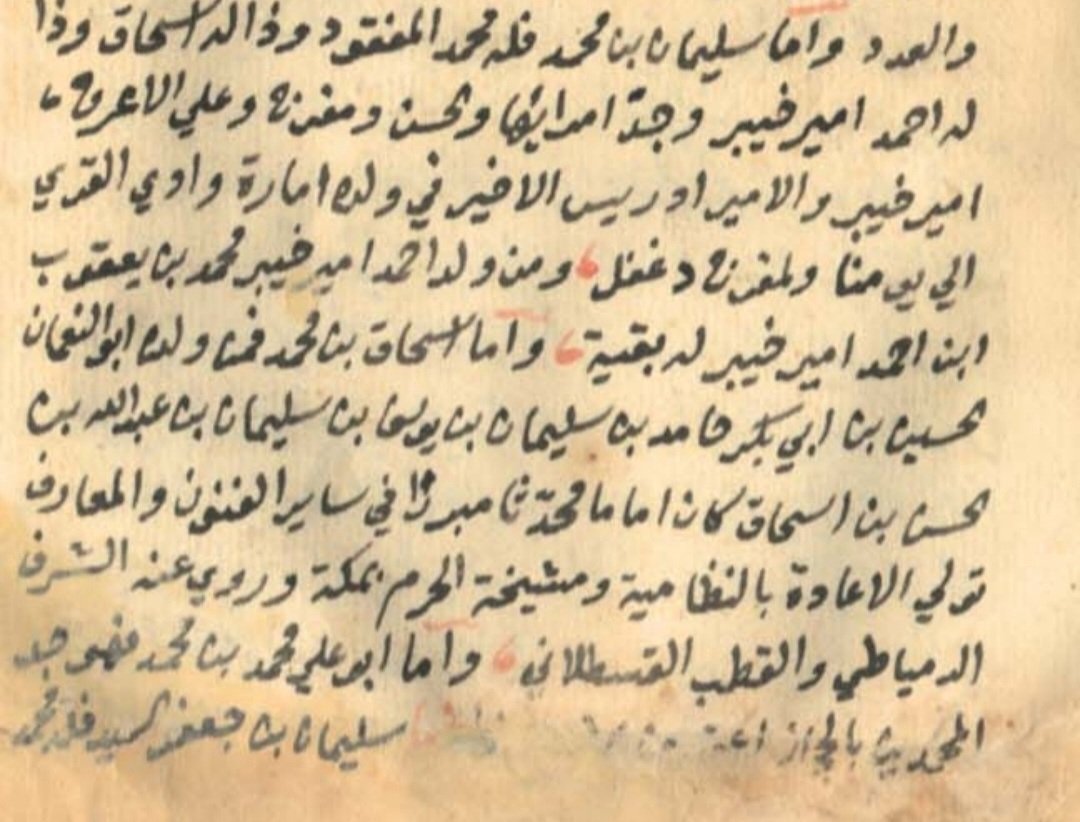 والعدد واما سليمان بن محمد فله محمد المفقود وذا له اسحاق وذا
له احمد امير خيبر وجد امرائها والحسن ومفرح وعلي الاعرج
امير خيبر والامير ادريس الاخير في ولده امارة وادي القري
الي يومنا ولمفرح دغفل ومن ولد احمد امير خيبر محمد بن يعقوب
ابن احمد امير خيبر له بقية واما اسحاق بن محمد فمن ولده ابو النعمان
الحسين بن ابي بكر حامد بن سليمان بن يوسف بن سليمان بن عبدالله بن
الحسن بن اسحاق كان اماما محدثا مبرزا في ساير الفنون والمعارف
تولي الاعادة بالنظامية ومشيخة الحرم بمكة وروي عنه الشرف
الدمياطي والقطب القسطلاني واما ابو علي محمد بن محمد فهو جد
بالحجاز سليمان بن جعفر السيد فله محمد